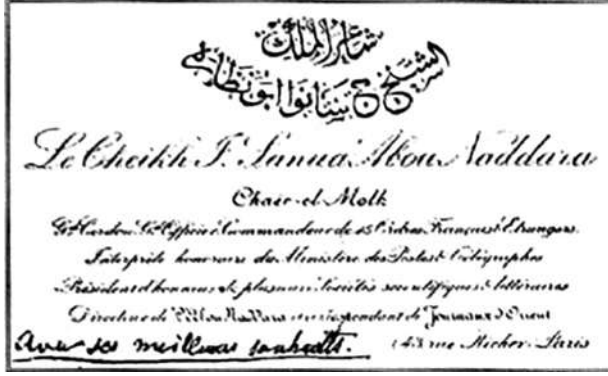 شاعر الملك
الشيخ ج سانوا ابو نظارة
Le Cheikh J. Sanua Abou Naddara
Chaïr-el-Molk
Gd. Cordon, Gd. Officier, Commandeur de 15 Ordres Français & Etrangers
Interprète honoraire du Ministère des Postes & Télégraphes
Président d'honneur de plusieurs Sociétés scientifiques & littéraires
Directeur de l'Abou Naddara et correspondant de Journaux d'Orient
Avec ses meilleurs souhaits.
43 rue Richer. Paris